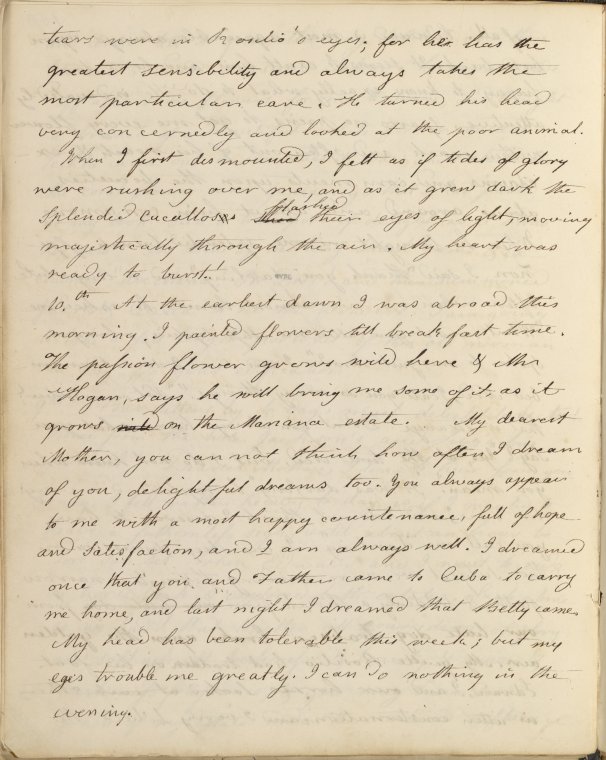 tears were in Rosilio's eyes; for he has the
greatest sensibility and always takes the
most particular care. He turned his head
very concernedly and looked at the poor animal.
When I first dismounted, I felt as if tides of glory
were rushing over me, and as it grew dark the
splendid cucullos flashed their eyes of light, moving
majestically through the air. My heart was
ready to burst!
10.th At the earliest dawn I was abroad this
morning. I painted flowers till breakfast time.
The passion flower grows wild here & Mr
Hogan, says he will bring me some of it, as it
grows wild on the Mariana estate. My dearest
Mother, you can not think how often I dream
of you, delightful dreams too. You always appear
to me with a most happy countenance, full of hope
and satisfaction, and I am always well. I dreamed
once that you and Father came to Cuba to carry
me home, and last night I dreamed that Betty came.
My head has been tolerable this week; but my
eyes trouble me greatly. I can do nothing in the
evening.